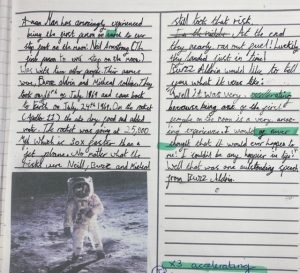 A man Man has amazingly experienced
being the first person to ever
step foot on the moon! Neil Armstrong (The
first person to walk step on the moon)
Was with two other people. Their names
were, Buzz Aldrin and Michael Collins. They
took on 16th in July 1969 and came back
to Earth on July 24th 1969. On the rocket
(Apollo 11) the ate dry food and added
water. The rocket was going at 25,000
What is 30x faster than a
jet plane. No matter what the
risks were Neil, Buzz and Michael
still took that risk.
At the end
they nearly ran out fuel! Luckily
they landed just in time!
Buzz Aldrin would like to tell
you what it was like:
Well it was very accelerating
because being one of the first
people on the moon is a very amaz-
ing experience. I would of never
thought that it would ever happen to
me. I couldn't be any happier in life."
Well that was one outstanding speech
from Buzz Aldrin.
x3 accelerating